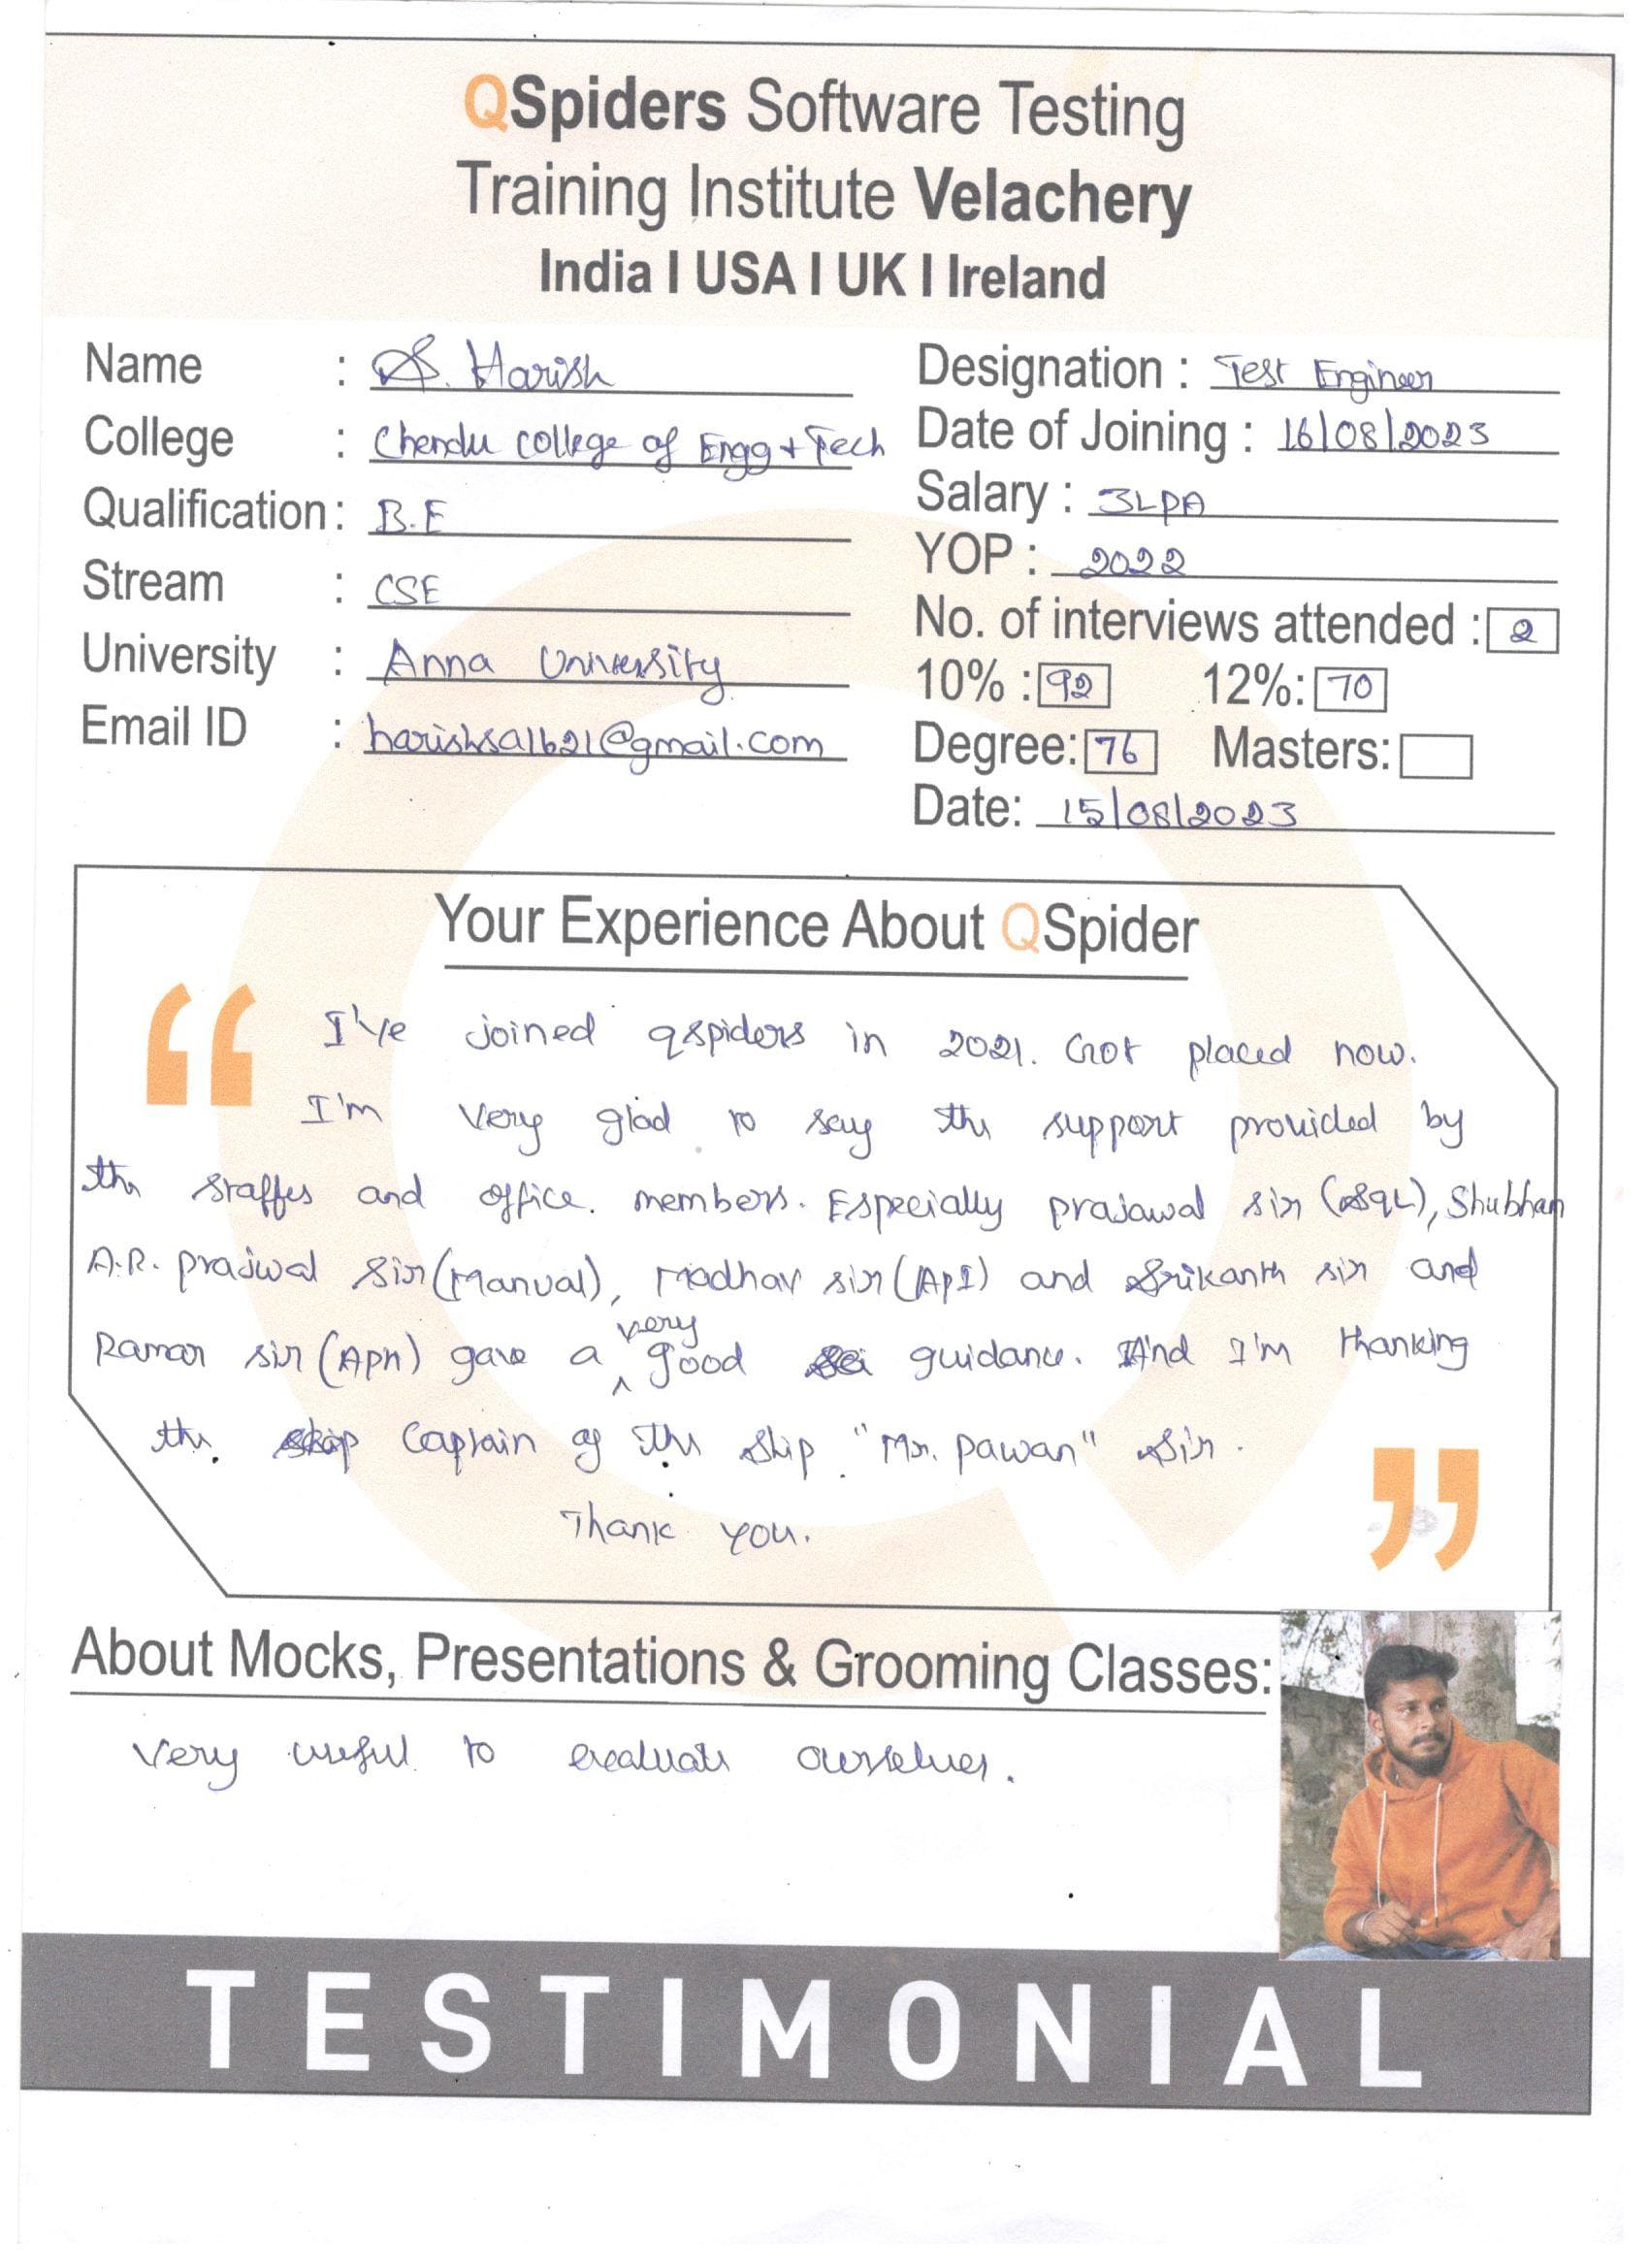 QSpiders Software Testing
Training Institute Velachery
India I USA I UK I Ireland
Name : S. Harish
College : Chendu college of Engg + Tech
Qualification : B.E
Stream : CSE
University : Anna University
Email ID : harishsa1621@gmail.com
Designation : Test Engineer
Date of Joining : 16/08/2023
Salary : 3LPA
YOP : 2022
No. of interviews attended : 2
10% : 92 12%: 70
Degree: 76 Masters:
Date: 15/08/2023
Your Experience About QSpider
I've joined qspiders in 2021. Got placed now.
I'm very glad to say the support provided by
the staffes and office. members. Especially prajawal sir (SQL), Shubham
A.R. prajwal sir (Manual), Madhav sir (API) and Srikanth sir and
Raman sir (APM) gave a very good guidance. And I'm thanking
the Captain of the ship. "Mr. pawan" sir.
Thank you.
About Mocks, Presentations & Grooming Classes:
Very useful to evaluate ourselves.
TESTIMONIAL